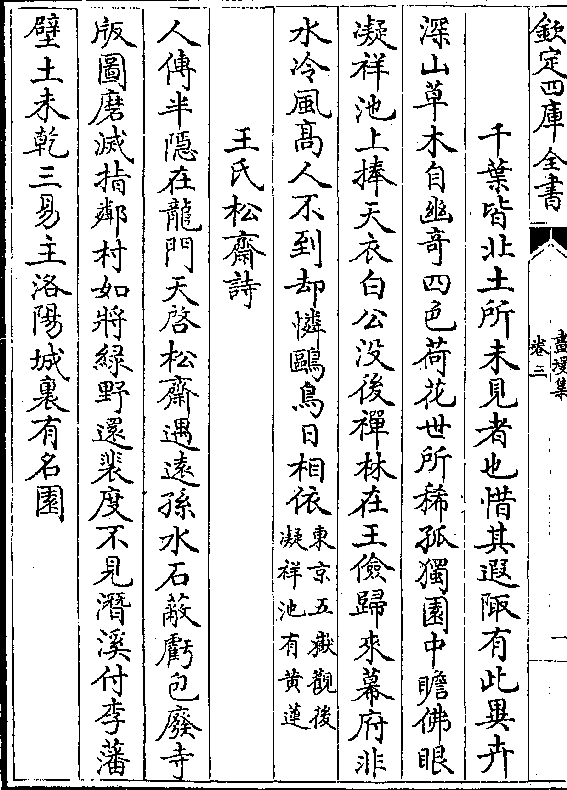 欽定四庫全書
畫墁集
卷三
千葉皆北土所未見者也惜其遐陬有此異卉
深山草木自幽奇四色荷花世所稀孤獨園中瞻佛眼
凝祥池上捧天衣白公没後禪林在王儉歸來幕府非
水冷風髙人不到却憐鷗鳥日相依東京五嶽觀後
凝祥池有黄蓮
王氏松齋詩
人傳半隠在龍門天啓松齋遇逺孫水石蔽虧包廢寺
版圖磨滅指鄰村如將緑野還裴度不見潛溪付李藩
壁土未乾三易主洛陽城裏有名園